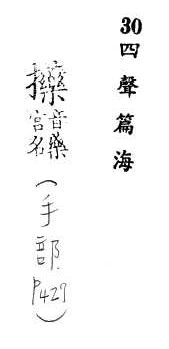 30四聲篇海
音
宮名
(手部 P429)